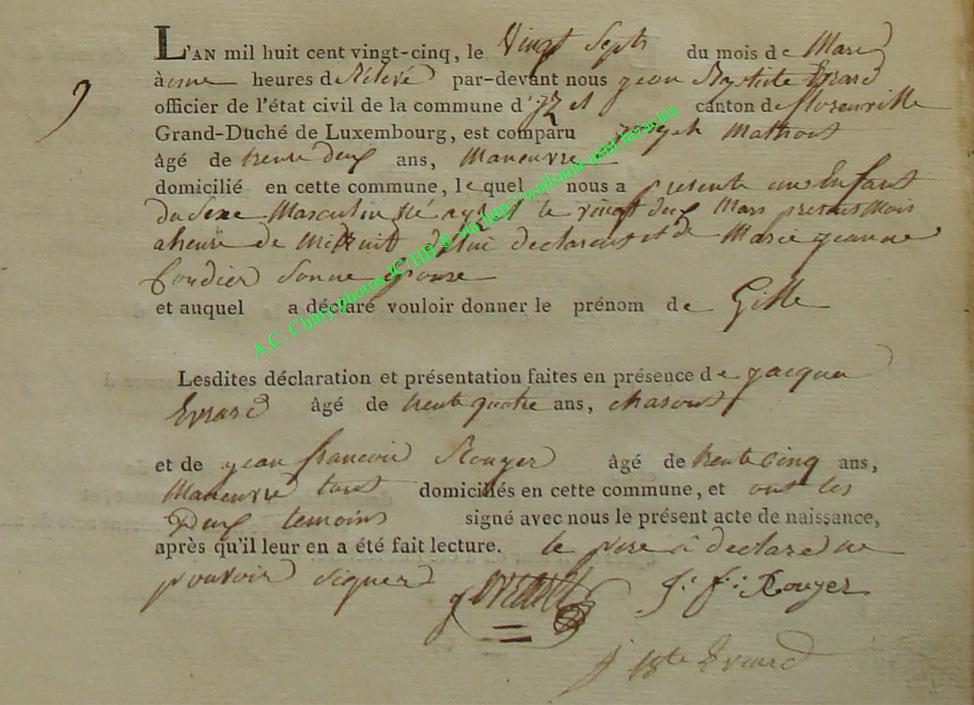 9
L'AN mil huit cent vingt-cinq, le Vingt Sept du mois de Mars
à une heures de Relevé par-devant nous jean Baptiste Evrard
officier de l'état civil de la commune d'izel canton de florenville
Grand-Duché de Luxembourg, est comparu joseph Mathout
âgé de trente deux ans, Maneuvre
domicilié en cette commune, lequel nous a presente un Enfant
du Sexe Masculin Né a izel le vingt deux Mars present Mois
a heure de Minuit de lui declarant et de Marie jeanne
Cordier Son Epouse
et auquel a déclaré vouloir donner le prénom de Gille
Lesdites déclaration et présentation faites en présence de jacque
Evrard âgé de trente quatre ans,
et de jean francois Rouyer âgé de trente Cinq ans,
Maneuvre tous domiciliés en cette commune, et ont les
Deux temoins signé avec nous le présent acte de naissance,
après qu'il leur en a été fait lecture. le pere a declare ne
pouvoir signer
J: f: Rouyer
j Bte Evrard
A.C. Chiny photos JC/HR ® via http://wallonia-asbl.be/actes